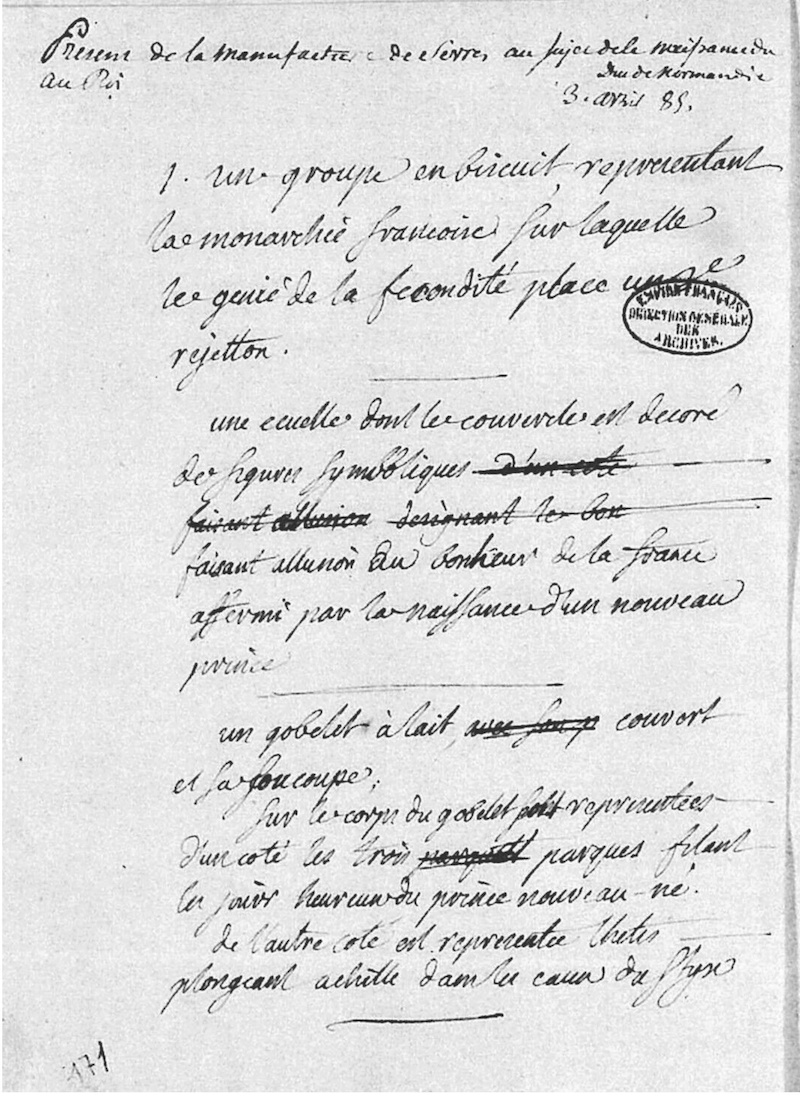 Présens de la manufacture de Sèvres au sujet de la naissance du
au Roi
Duc de Normandie
3. avril 85.
1. un groupe en biscuit, representant
la monarchie francoise sur laquelle
le genie de la fecondité place un
EMPIRE FRANÇAIS
DIRECTION GÉNÉRALE
DES
ARCHIVES.
rejetton.
une ecuelle dont le couvercle est decoré
de figures symboliques d'un coté
faisant allusion designant le bon
faisant allusion au bonheur de la france
affermi par la naissance d'un nouveau
prince
un gobelet à lait, avec son p couvert
et sa soucoupe;
sur le corps du gobelet sont representées
d'un coté les trois parques filant
les jours heureux du prince nouveau-né.
de l'autre coté est representée thetis
plongeant achille dans les eaux du Styx
171